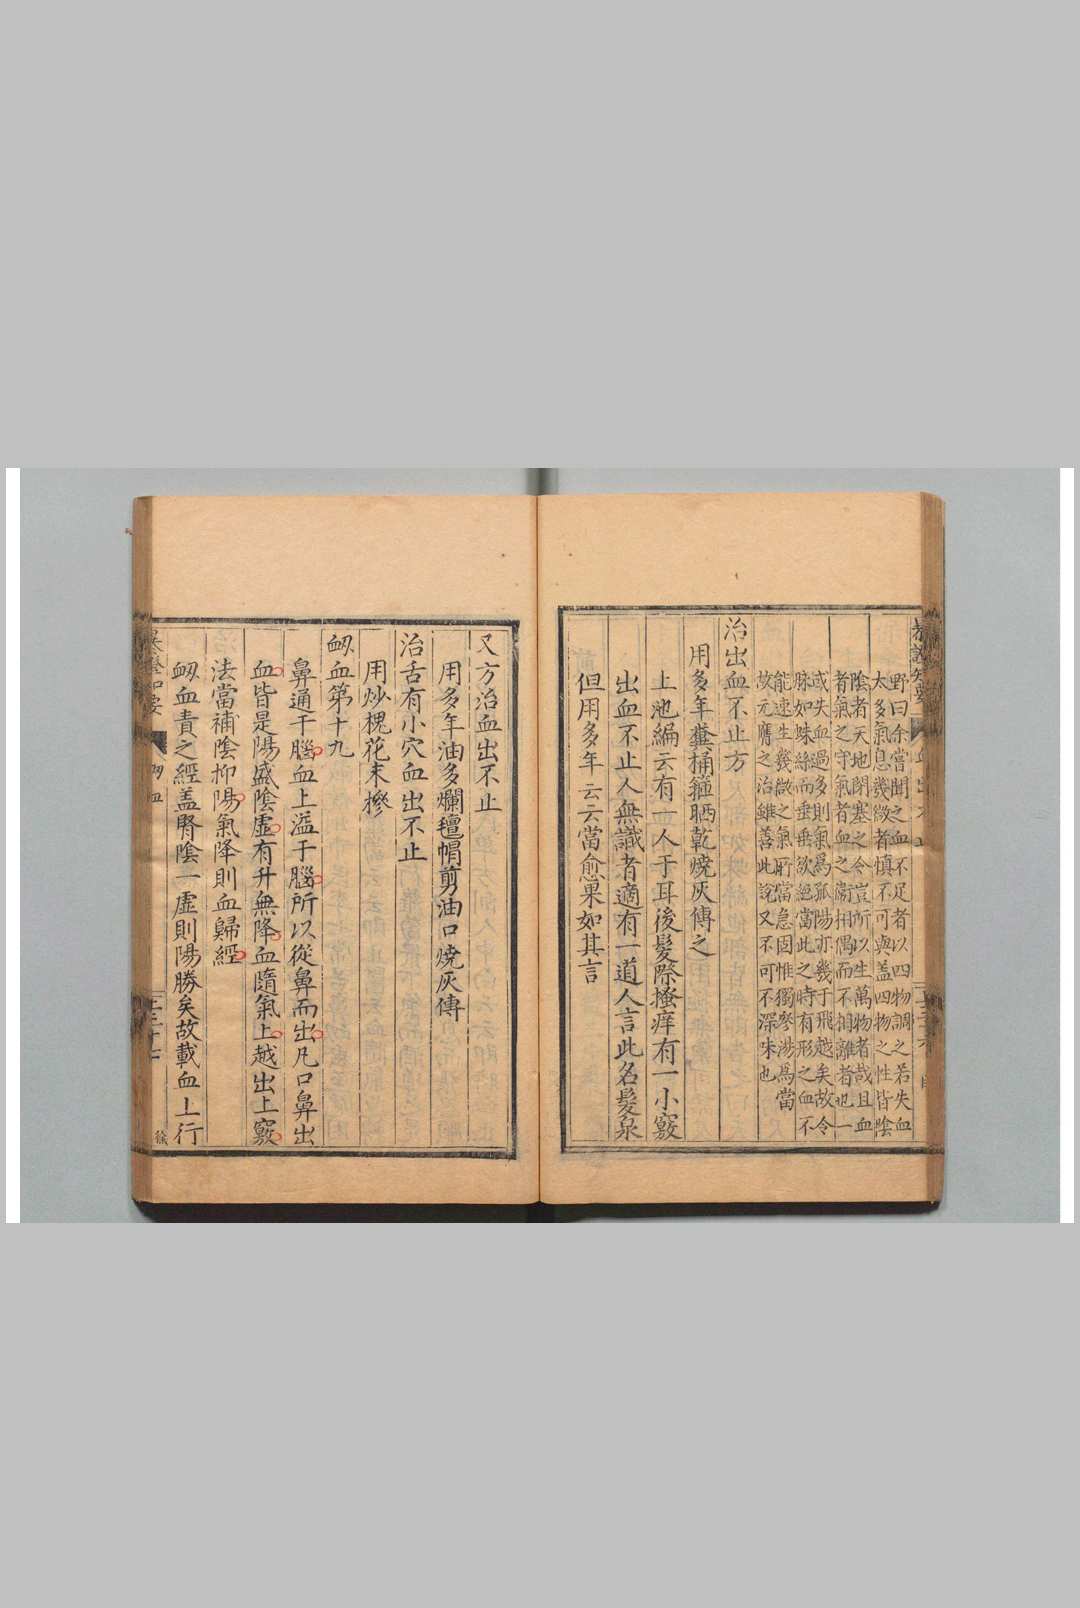 野曰余嘗聞之血不足者以四物調之若失血
太多氣息幾微者慎不可與蓋四物之性皆陰
陰者天地閉塞之令豈所以生萬物者哉且血
者氣之守氣者血之衞相偶而不相離者也一
或失血過多則氣為孤陽亦幾于飛越矣故令
脉如蛛絲而垂垂欲絕當此之時有形之血不
能速生幾微之氣所當急固惟獨參湯為當
故元膺之治雖善此說又不可不深味也
治出血不止方
用多年糞桶箍晒乾燒灰傳之
上池編云有一人于耳後髮際搔痒有一小竅
出血不止人無識者適有一道人言此名髮泉
但用多年云云當愈果如其言
又方治血出不止
用多年油多爛氊帽剪油口燒灰傳
治舌有小穴血出不止
用炒槐花末摻
衂血第十九
鼻通于腦血上溢于腦所以從鼻而出凡口鼻出
血皆是陽盛陰虛有升無降血隨氣上越出上竅
法當補陰抑陽氣降則血歸經
衂血責之經蓋腎陰一虛則陽勝矣故載血上行
衂血
二三十七
徐